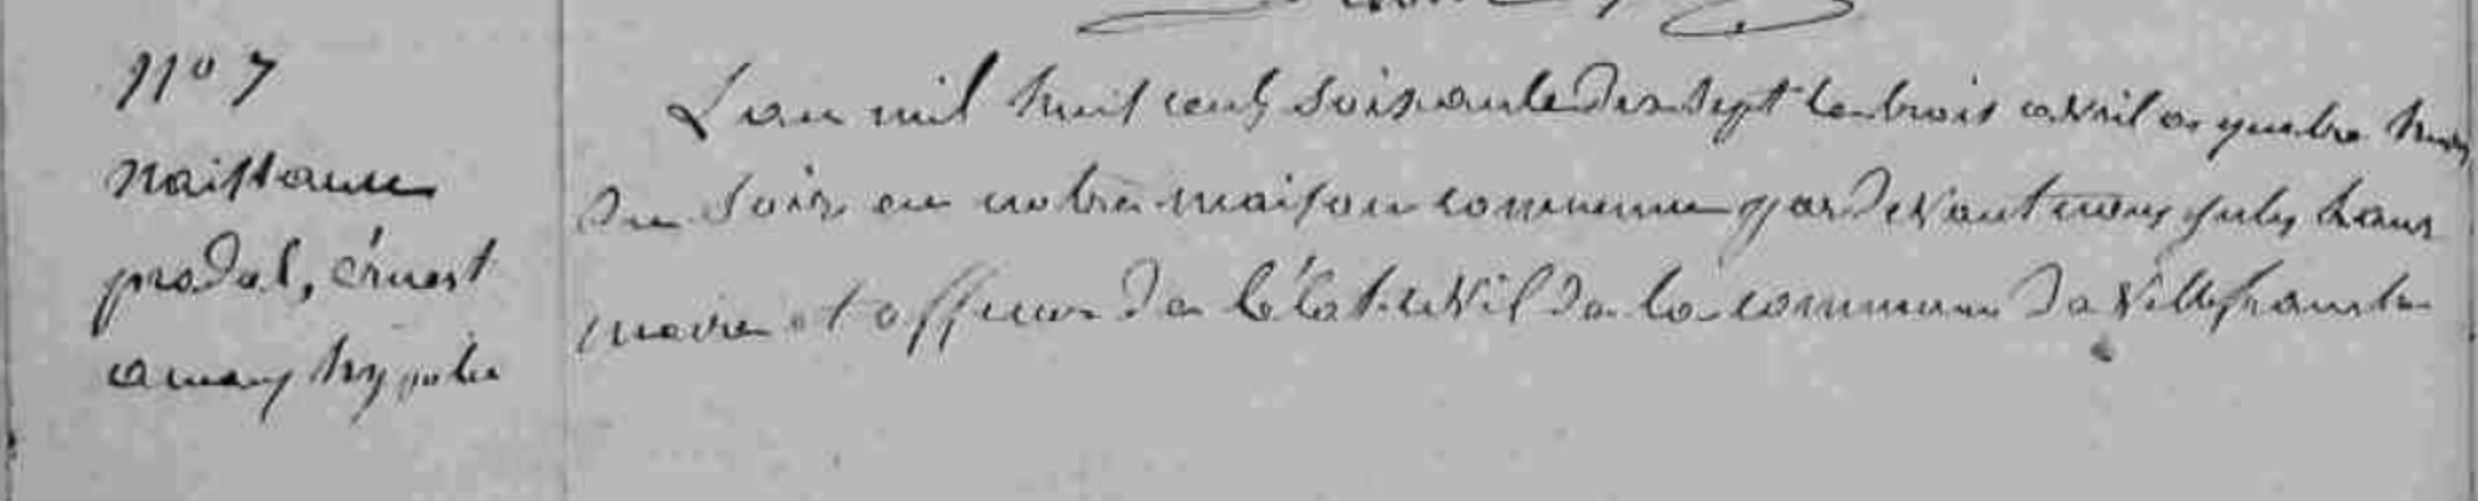 N° 7
Naissance
pradal, érnest
amans hypolite
L'an mil huit cent soixante dix sept le trois avril a quatre heures
du soir en notre maison commune par devant nous jules
maire et officier de l'état civil de la commune de Villefranche